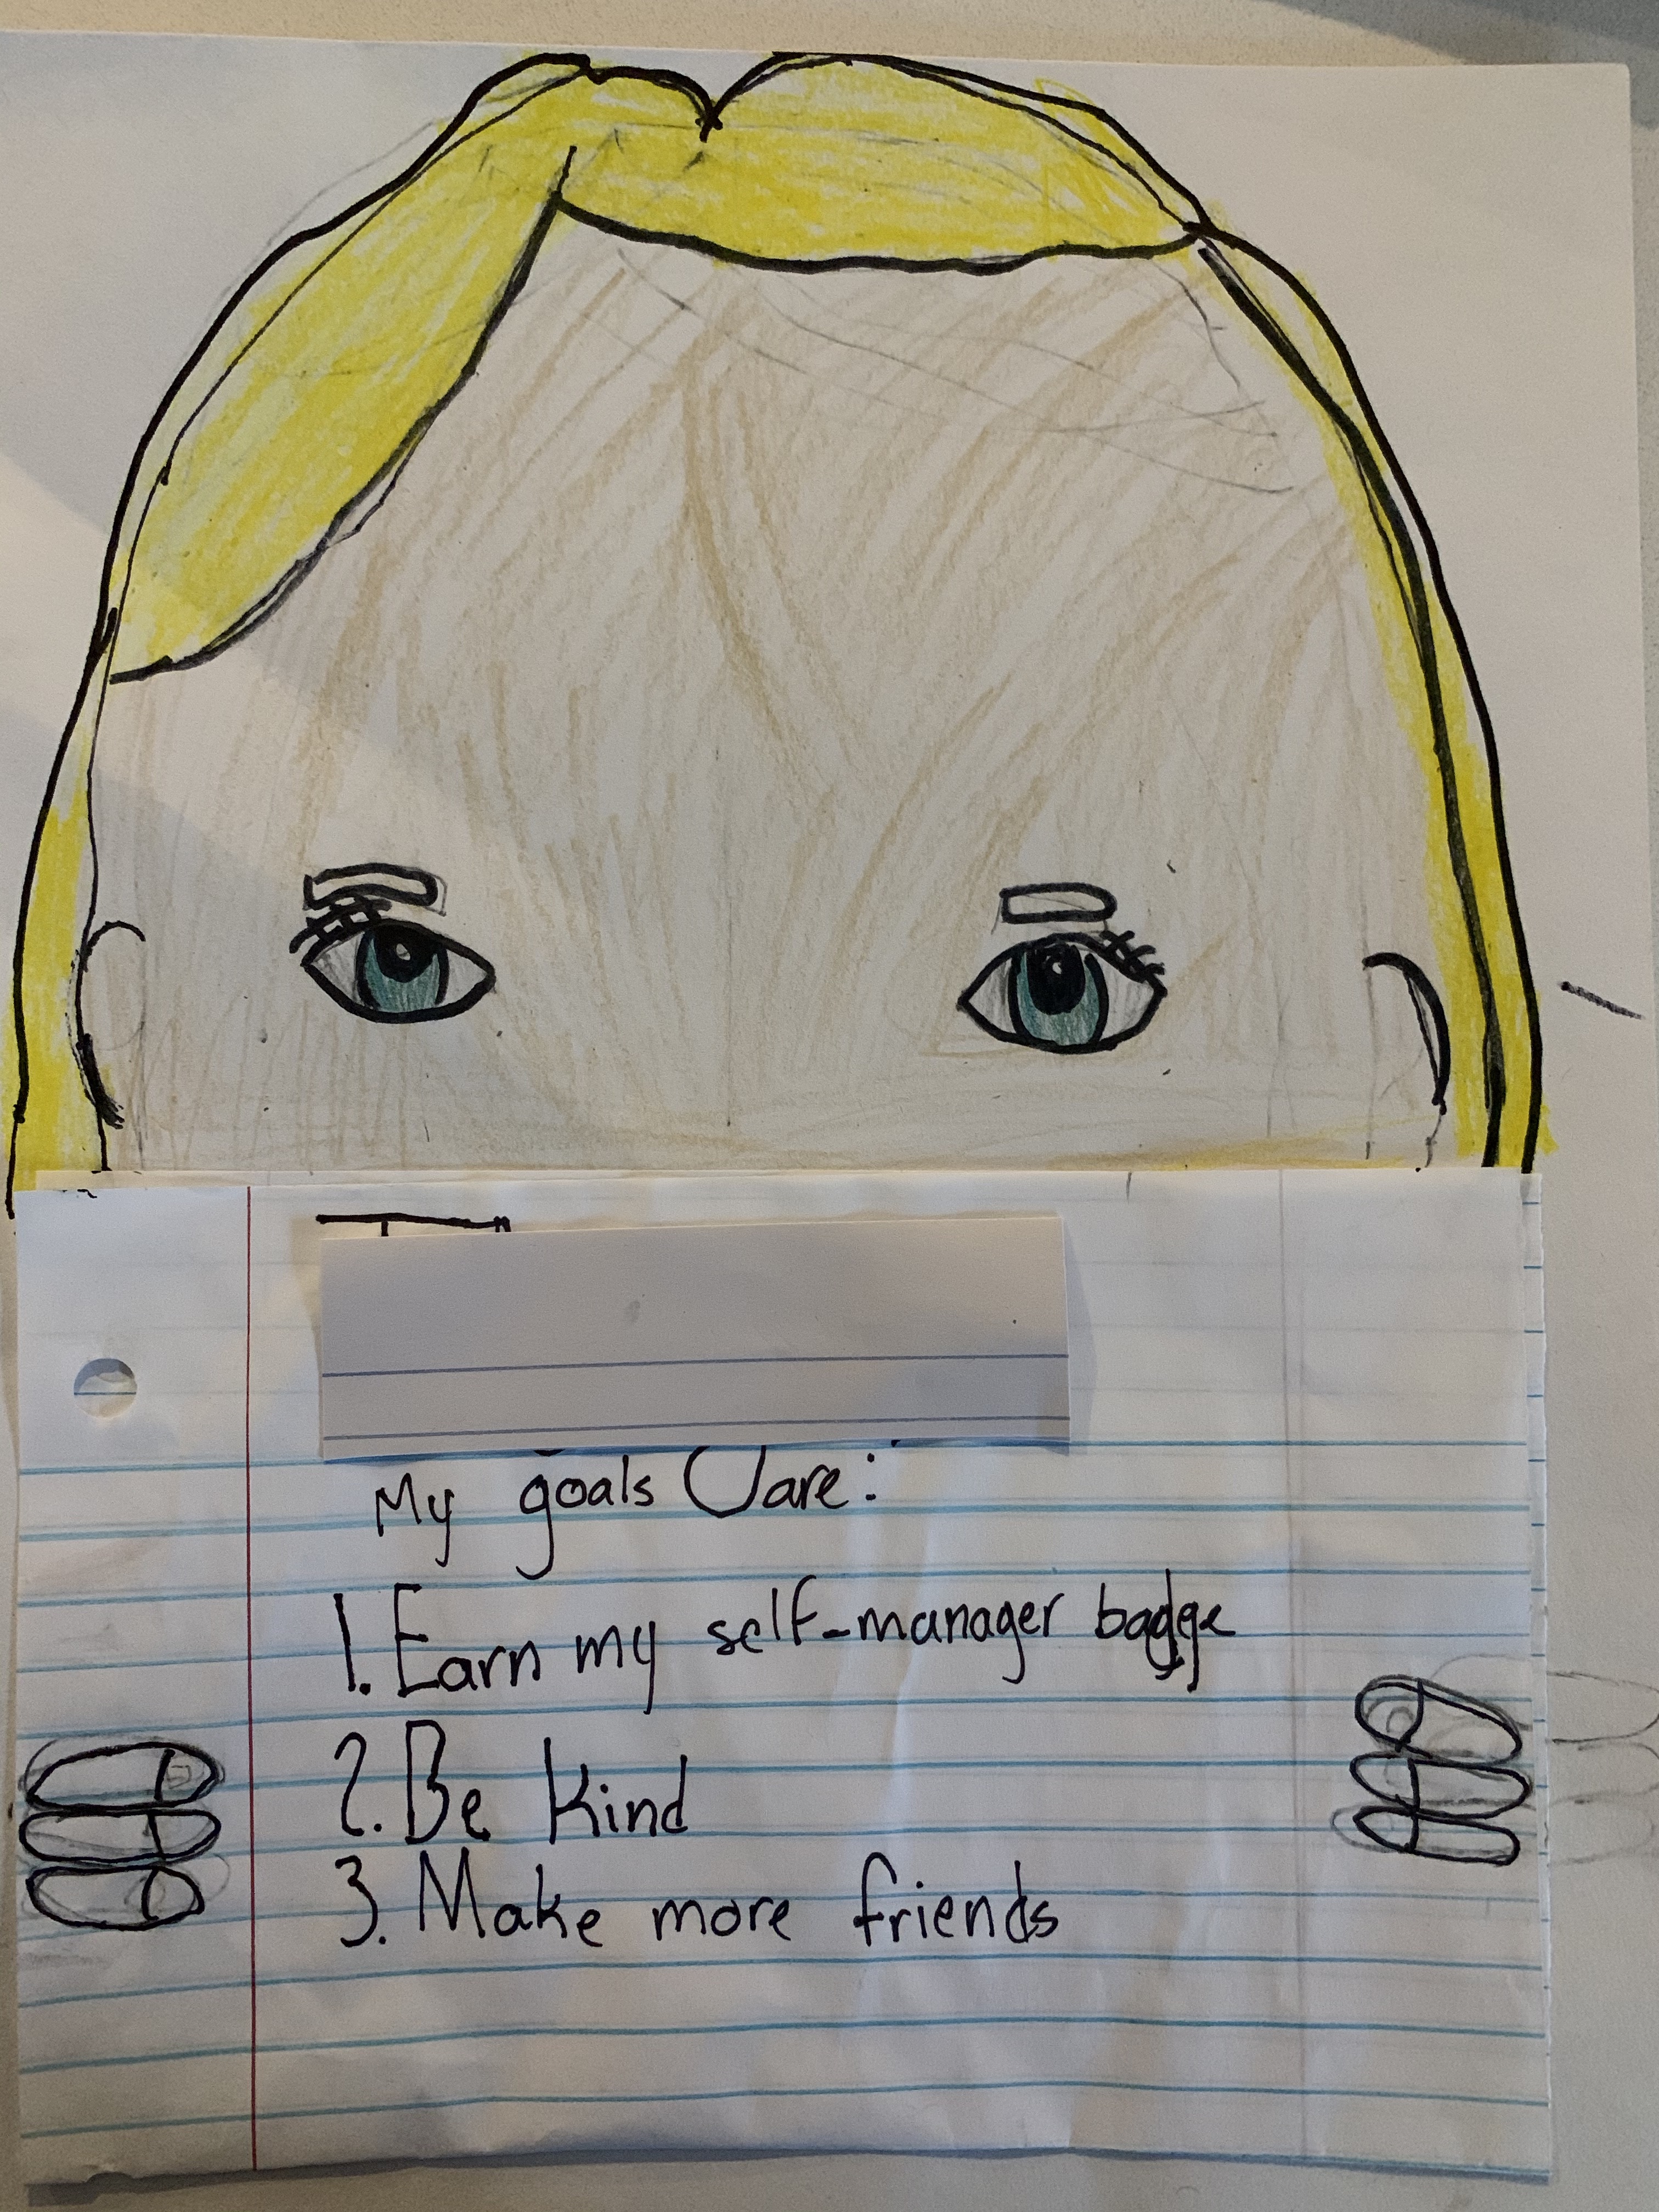 My goals are:
1. Earn my self-manager badge
2. Be kind
3. Make more friends